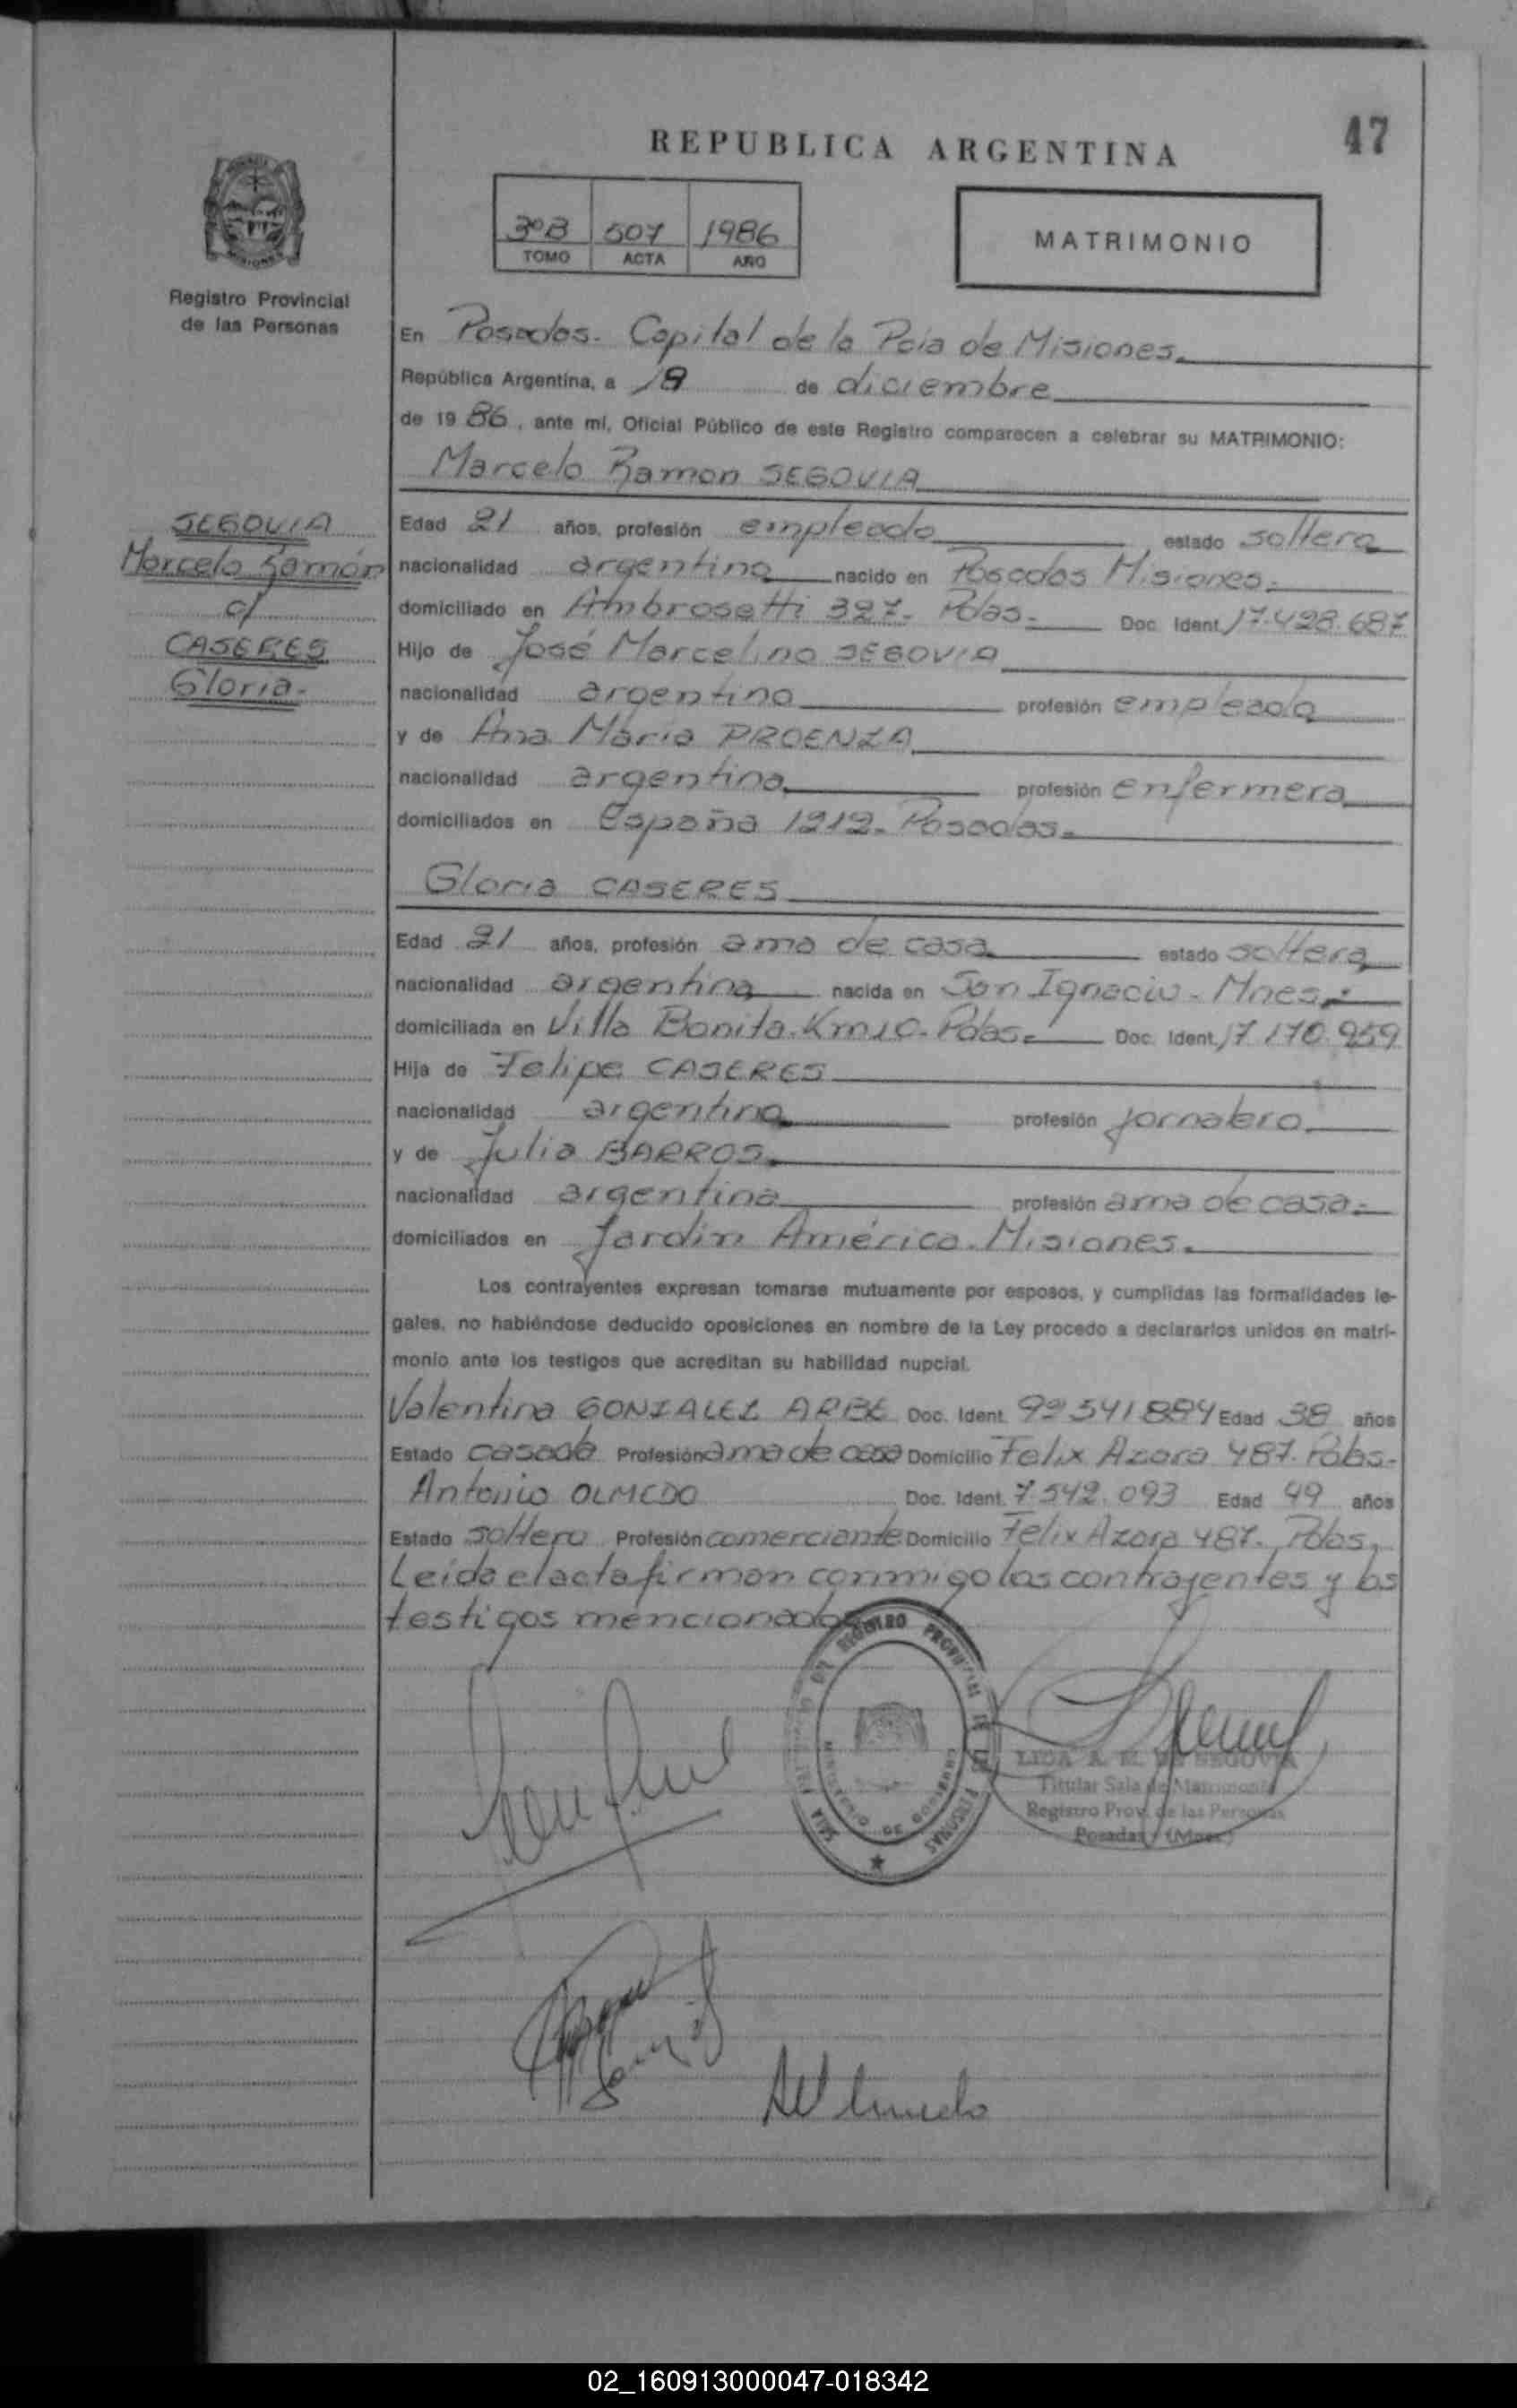 47
REPUBLICA ARGENTINA
3ºB 507 1986
TOMO ACTA AÑO
MATRIMONIO
Registro Provincial
de las Personas
En Posadas. Capital de la Pcia de Misiones.
República Argentina, a 19 de diciembre
de 19 86, ante mí, Oficial Público de este Registro comparecen a celebrar su MATRIMONIO:
Marcelo Ramon SEGOVIA
SEGOVIA
Marcelo Ramón
c/
CASERES
Gloria.
Edad 21 años, profesión empleado estado soltero
nacionalidad argentino nacido en Posadas Misiones.
domiciliado en Ambrosetti 327. Pdas. Doc. Ident. 17.428.687
Hijo de José Marcelino SEGOVIA
nacionalidad argentino profesión empleado
y de Ana María PROENZA
nacionalidad argentina profesión enfermera
domiciliados en España 1212. Posadas.
Gloria CASERES
Edad 21 años, profesión ama de casa estado soltera
nacionalidad argentina nacida en San Ignacio - Mnes.
domiciliada en Villa Bonita. Km 10. Pdas. Doc. Ident. 17 170. 959
Hija de Felipe CASERES
nacionalidad argentino profesión jornalero.
y de Julia BARROS
nacionalidad argentina profesión ama de casa.
domiciliados en Jardín América. Misiones.
Los contrayentes expresan tomarse mutuamente por esposos, y cumplidas las formalidades le-
gales, no habiéndose deducido oposiciones en nombre de la Ley procedo a declararlos unidos en matri-
monio ante los testigos que acreditan su habilidad nupcial.
Valentina GONZALEZ ARBE Doc. Ident. 92 541 884 Edad 38 años
Estado casada Profesión ama de casa Domicilio Felix Azara 487. Pdas.
Antonio OLMEDO Doc. Ident. 7.542.093 Edad 49 años
Estado soltero Profesión comerciante Domicilio Felix Azara 487. Pdas.
Leída el acta firman conmigo los contrayentes y los
testigos mencionados
MINISTERIO DE GOBIERNO
LIDA A. M. DE SEGOVIA
Titular Sala de Matrimonio
Registro Prov. de las Personas
Posadas (Mnes.)
02_160913000047-018342